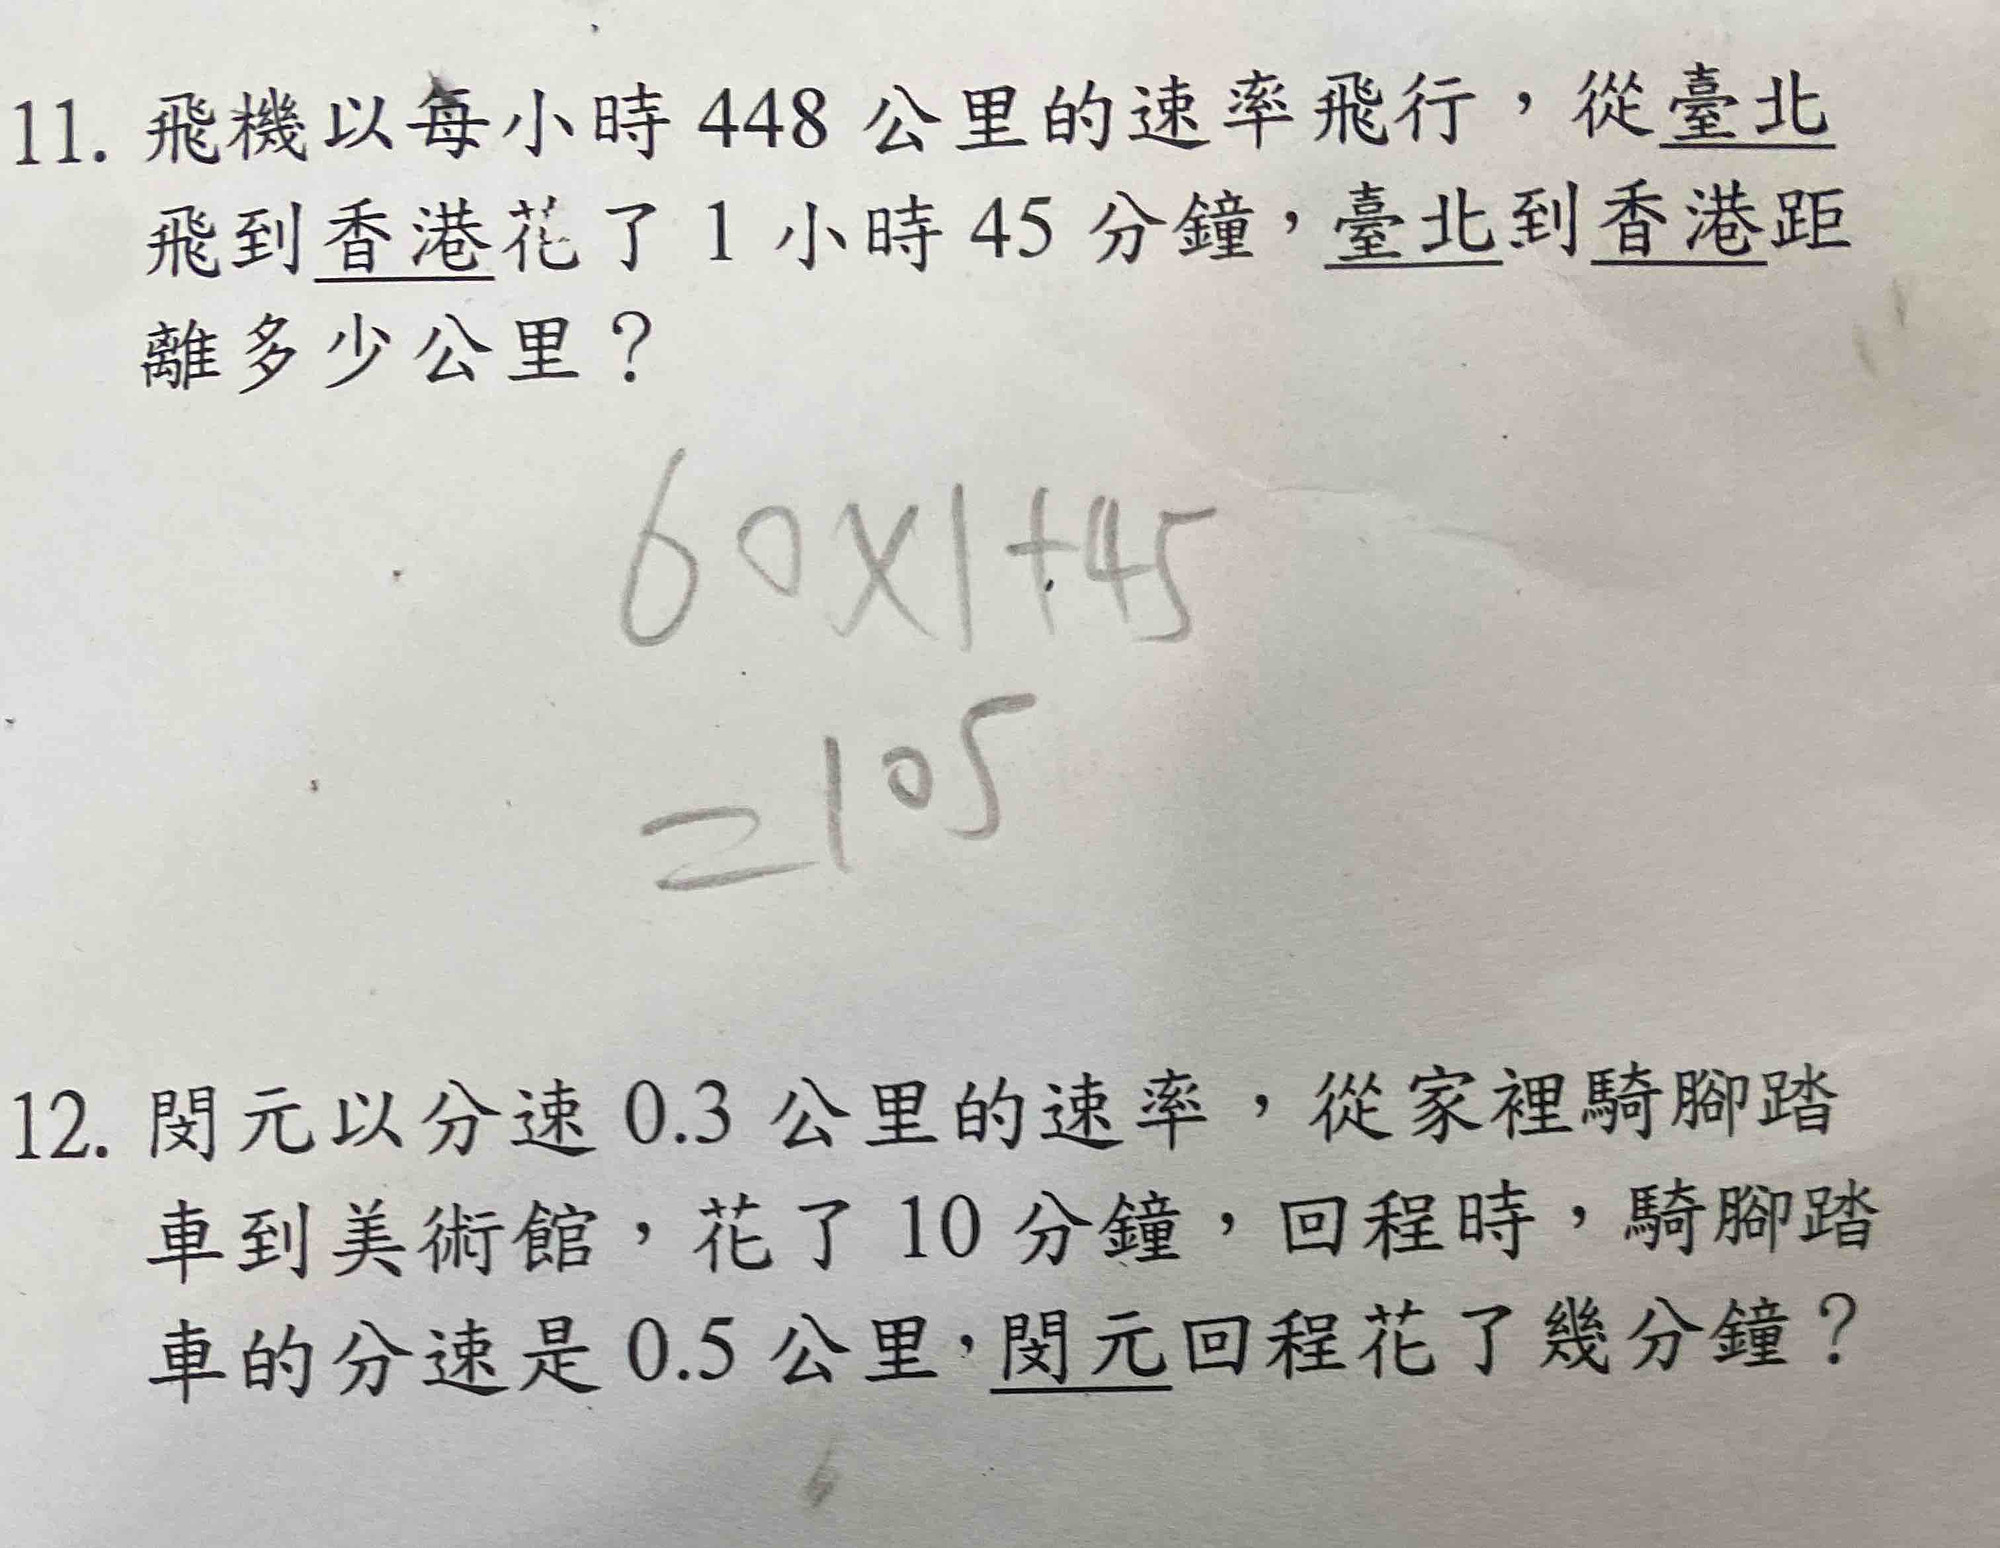 11. 飛機以每小時 448 公里的速率飛行，從臺北
飛到香港花了 1 小時 45 分鐘，臺北到香港距
離多少公里？
60×1+45
=105
12. 閔元以分速 0.3 公里的速率，從家裡騎腳踏
車到美術館，花了 10 分鐘，回程時，騎腳踏
車的分速是 0.5 公里，閔元回程花了幾分鐘？